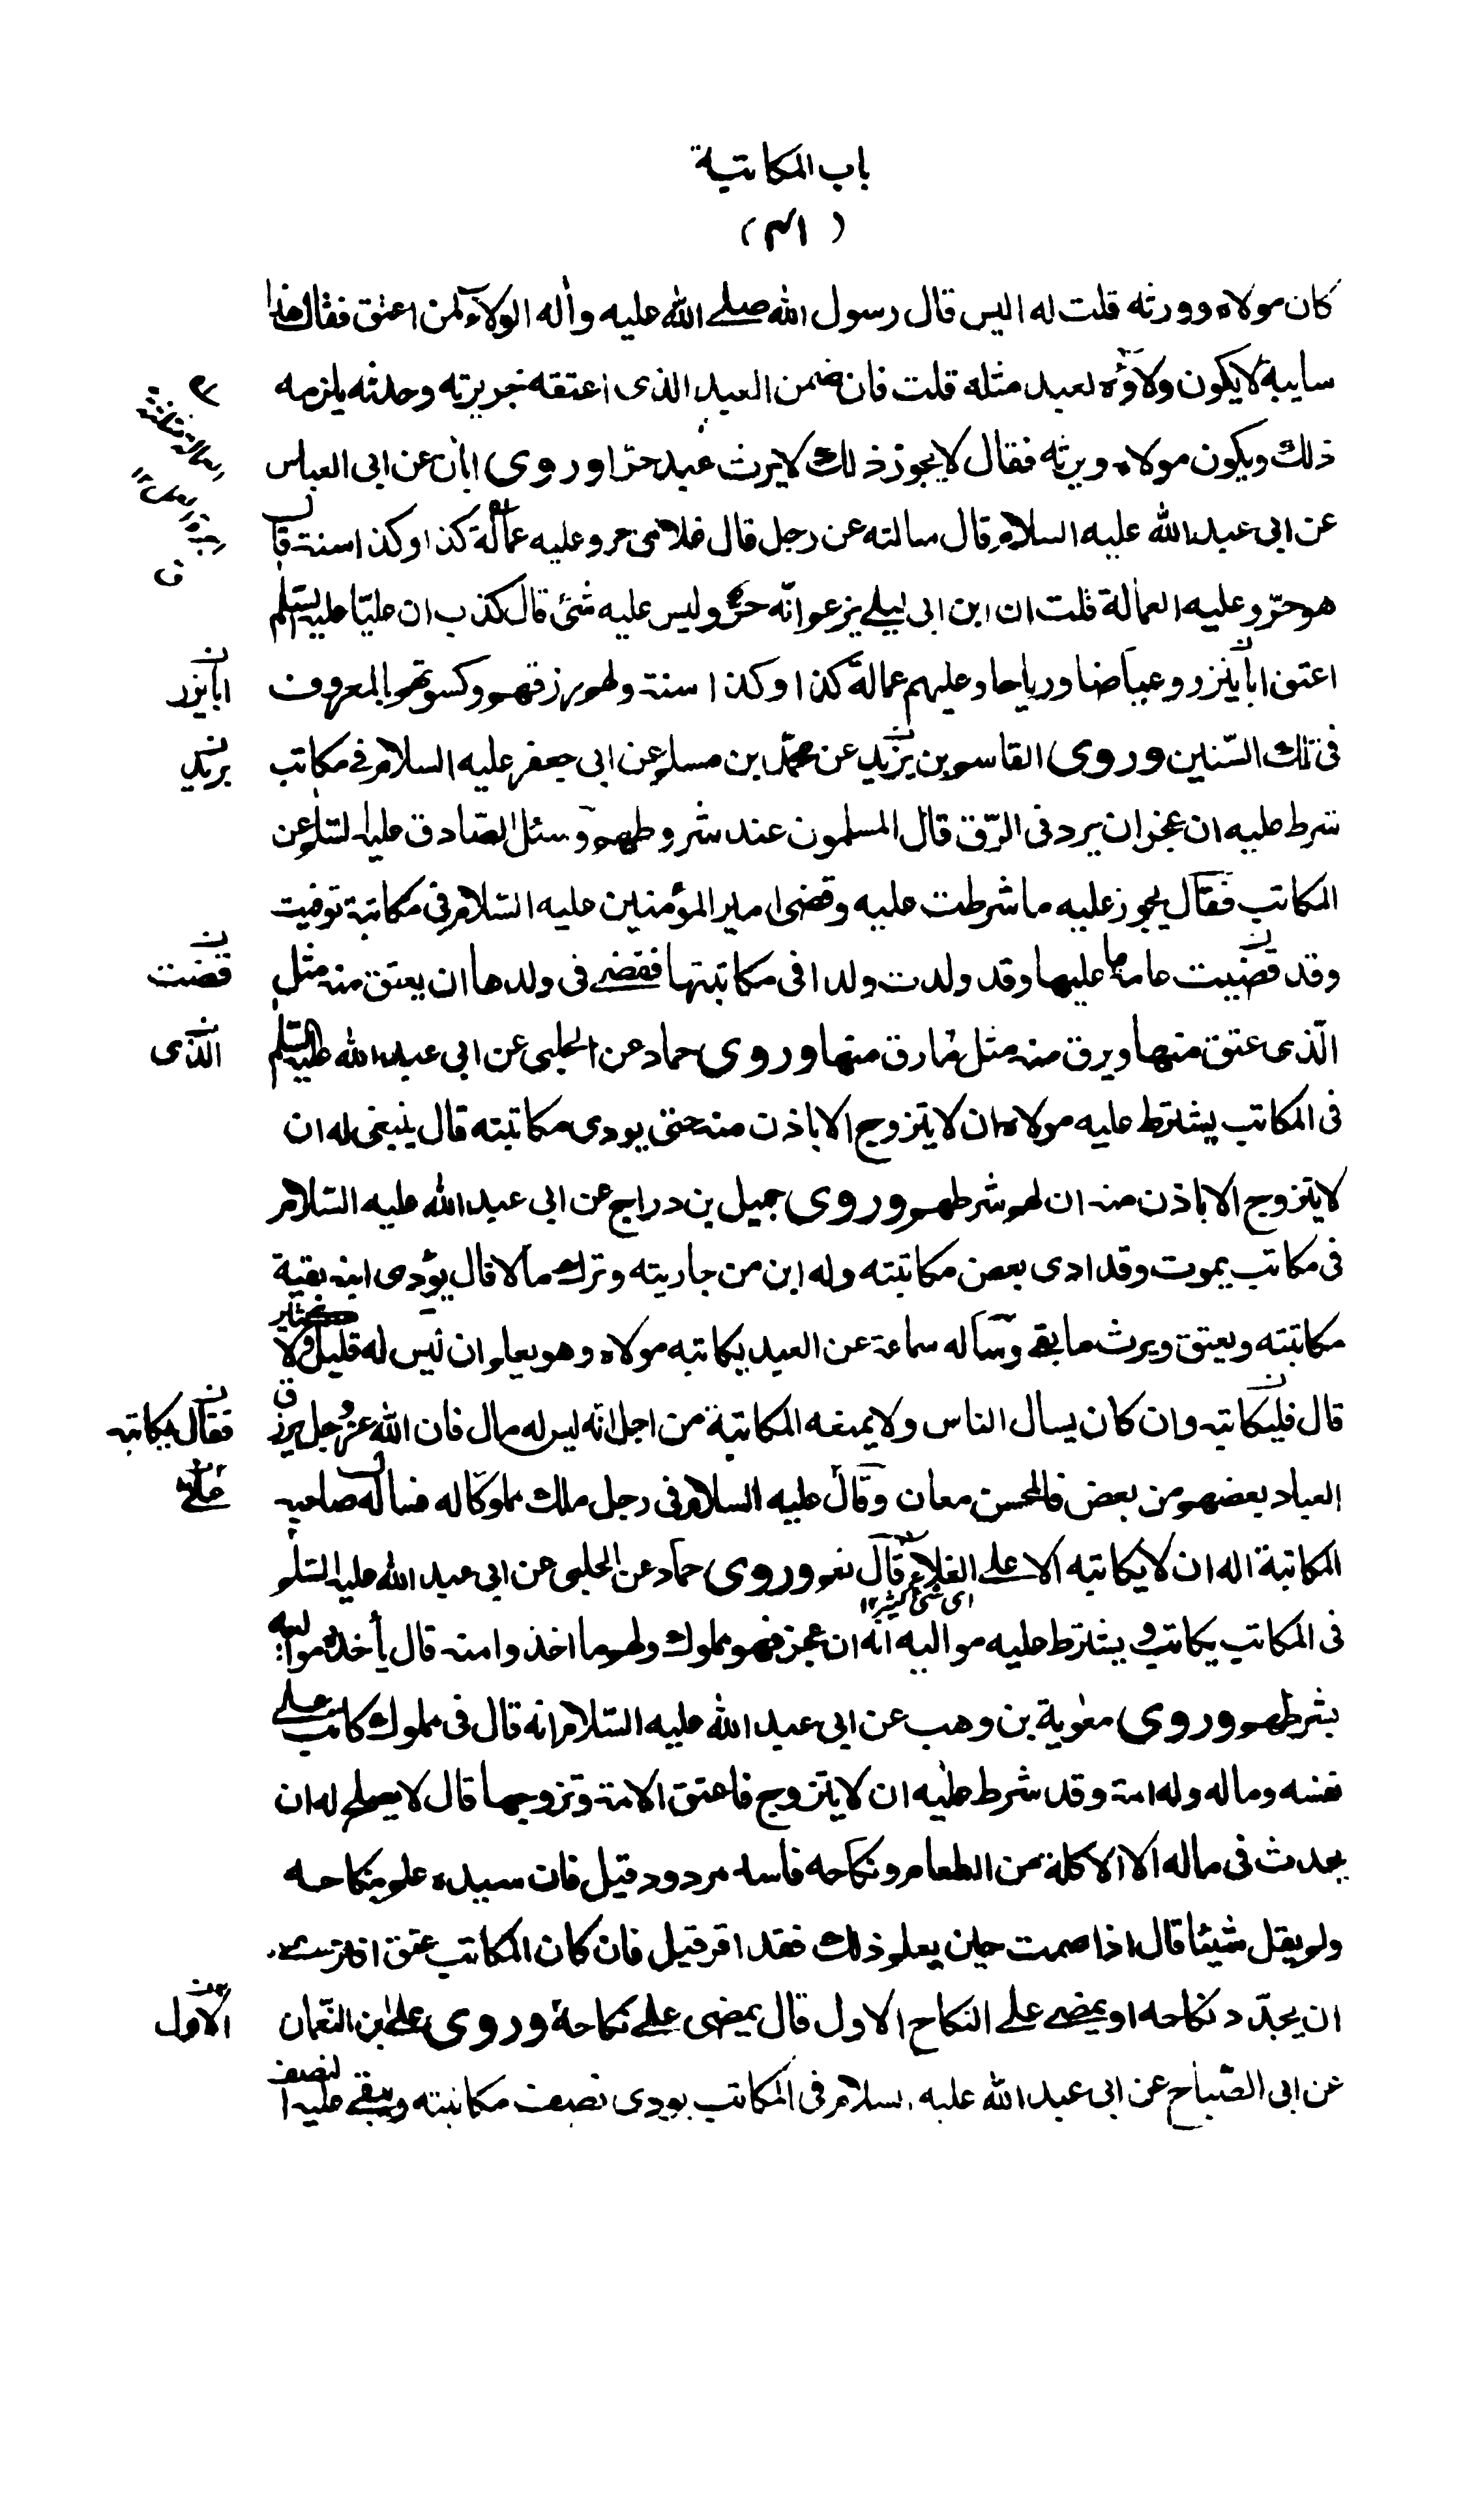 باب المكاتبة
(۴۱)
كان مولاه وورثه قلت له اليس قال رسول الله صلے الله عليه واٰله الولاء لمن اعتق فقال هذا
سايبة لا يكون ولاؤه لعبد مثله قلت فان ضمن العبد الذى اعتقه جريرته وحدثه يلزمه
ذلك ويكون مولاه ويرثه فقال لا يجوز ذلك لا يرث عبد حرّا وروى ابان عن ابى العباس
عن ابى عبد الله عليه السلام قال سالته عن رجل قال غلامى حر وعليه عمالة كذا وكذا سنة قال
هو حرّ وعليه العمالة قلت ان ابن ابى ليلے يزعم انّه حرّ وليس عليه شئ قال كذب ان عليّا عليه السّلم
اعتق ابا ينزر وعياضا ورياحا وعليهم عمالة كذا وكذا سنة ولهم رزقهم وكسوتهم بالمعروف
ابا نيزر
فى تلك السّنين وروى القاسم بن بريد عن محمّد بن مسلم عن ابى جعفر عليه السلام فى مكاتب
بريد
شرط عليه ان عجز ان يرد فى الرّق قال المسلمون عند شروطهم وسئل الصّادق عليه السّلم عن
المكاتب فقال يجوز عليه ما شرطت عليه وقضى امير المؤمنين عليه السّلام فى مكاتبة توفيت
وقد قضيت عامة ما عليها وقد ولدت ولدا فى مكاتبتها فقضے فى ولدها ان يعتق منه مثل
قضت
الّذى عتق منها ويرق منه مثل ما رق منها وروى حماد عن الحلبى عن ابى عبد الله عليه السّلم
الّذى
فى المكاتب يشترط عليه مولاه ان لا يتزوج الا باذن منه حتى يودى مكاتبته قال ينبغى له ان
لا يتزوج الا باذن منه ان لهم شرطهم وروى جميل بن دراج عن ابى عبد الله عليه السّلام
فى مكاتب يموت وقد ادى بعض مكاتبته وله ابن من جاريته وترك مالا قال يؤدى ابنه بقية
مكاتبته ويعتق ويرث ما بقے وسأله سماعة عن العبد يكاتبه مولاه وهو يعلم ان ليس له قليل ولا كثير
قال فليكاتبه وان كان يسال الناس ولا يمنعه المكاتبة من اجل انّه ليس له مال فان الله عزّ وجل يرزق
فقال يكاتبه
العباد بعضهم من بعض فالمحسن معان وقال عليه السلام فى رجل ملك مملوكا له فسأله صاحبه
المكاتبة اله ان لا يكاتبه الا علے الغلاء قال نعم وروى حمّاد عن الحلبى عن ابى عبد الله عليه السّلم
اى شئ كثير ۱۲
فى المكاتب يكاتب ويشترط عليه مواليه انّه ان عجز فهو مملوك ولهم ما اخذوا منه قال يأخذه مواليه
بشرطهم وروى معٰوية بن وهب عن ابى عبد الله عليه السّلام انه قال فى مملوك كاتب علے
نفسه وماله وله امة وقد شرط عليه ان لا يتزوج فاعتق الامة وتزوجها قال لا يصلح له ان
يحدث فى ماله الا الاكلة من الطعام ونكاحه فاسد مردود قيل فان سيده علم بنكاحه
ولم يقل شيئا قال اذا صمت حين يعلم ذلك فقد اقر قيل فان كان المكاتب عتق افترے
ان يجدّد نكاحه او يمضے علے النكاح الاول قال يمضى علے نكاحه وروى علے بن النّعمان
الاول
عن ابى الصّباح عن ابى عبد الله عليه السلام فى المكاتب يودى نصف مكاتبته ويبقے عليه النصف